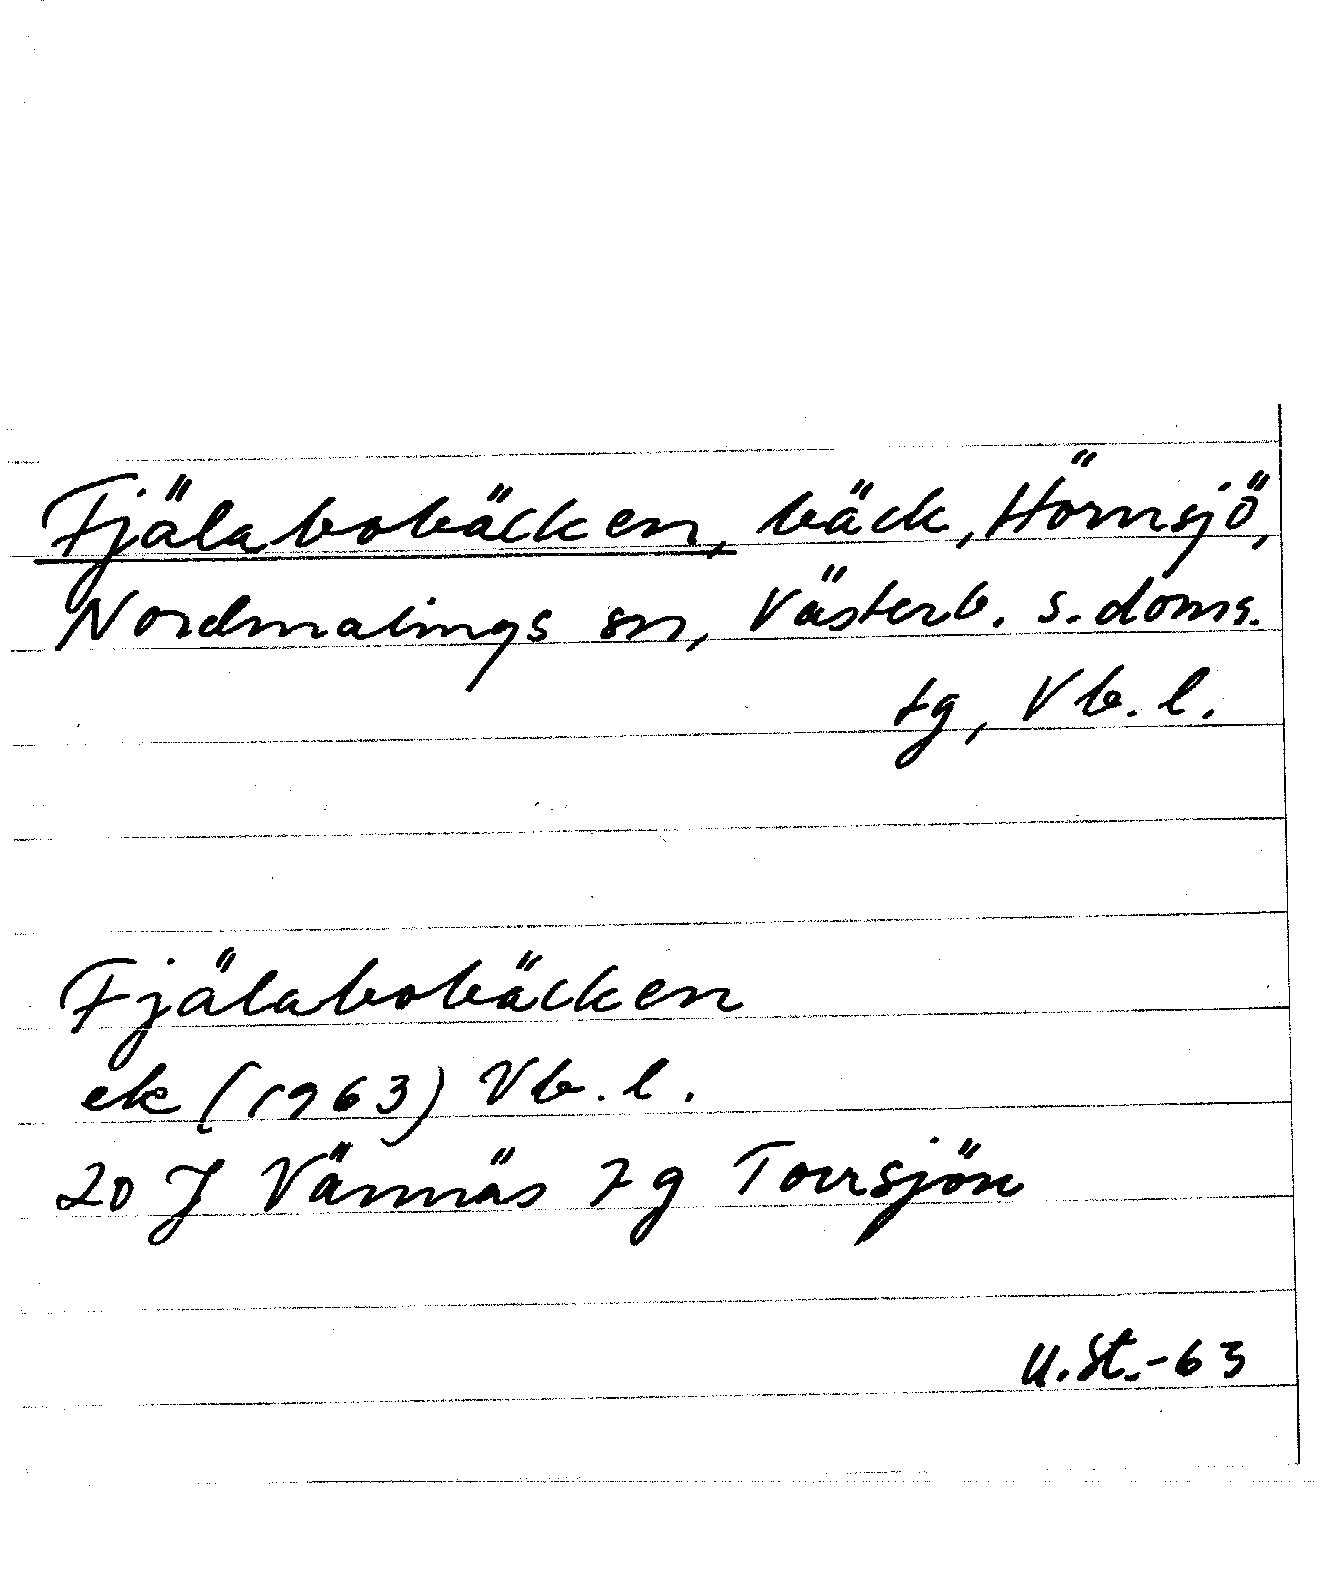 Fjälabobäcken, bäck, Hörnsjö,
Nordmalings sn, Västerb. s. doms.
tg, Vb. l.
Fjälabobäcken
ek (1963) Vb. l.
20 J Vännäs 7 g Torrsjön
U. St. -63